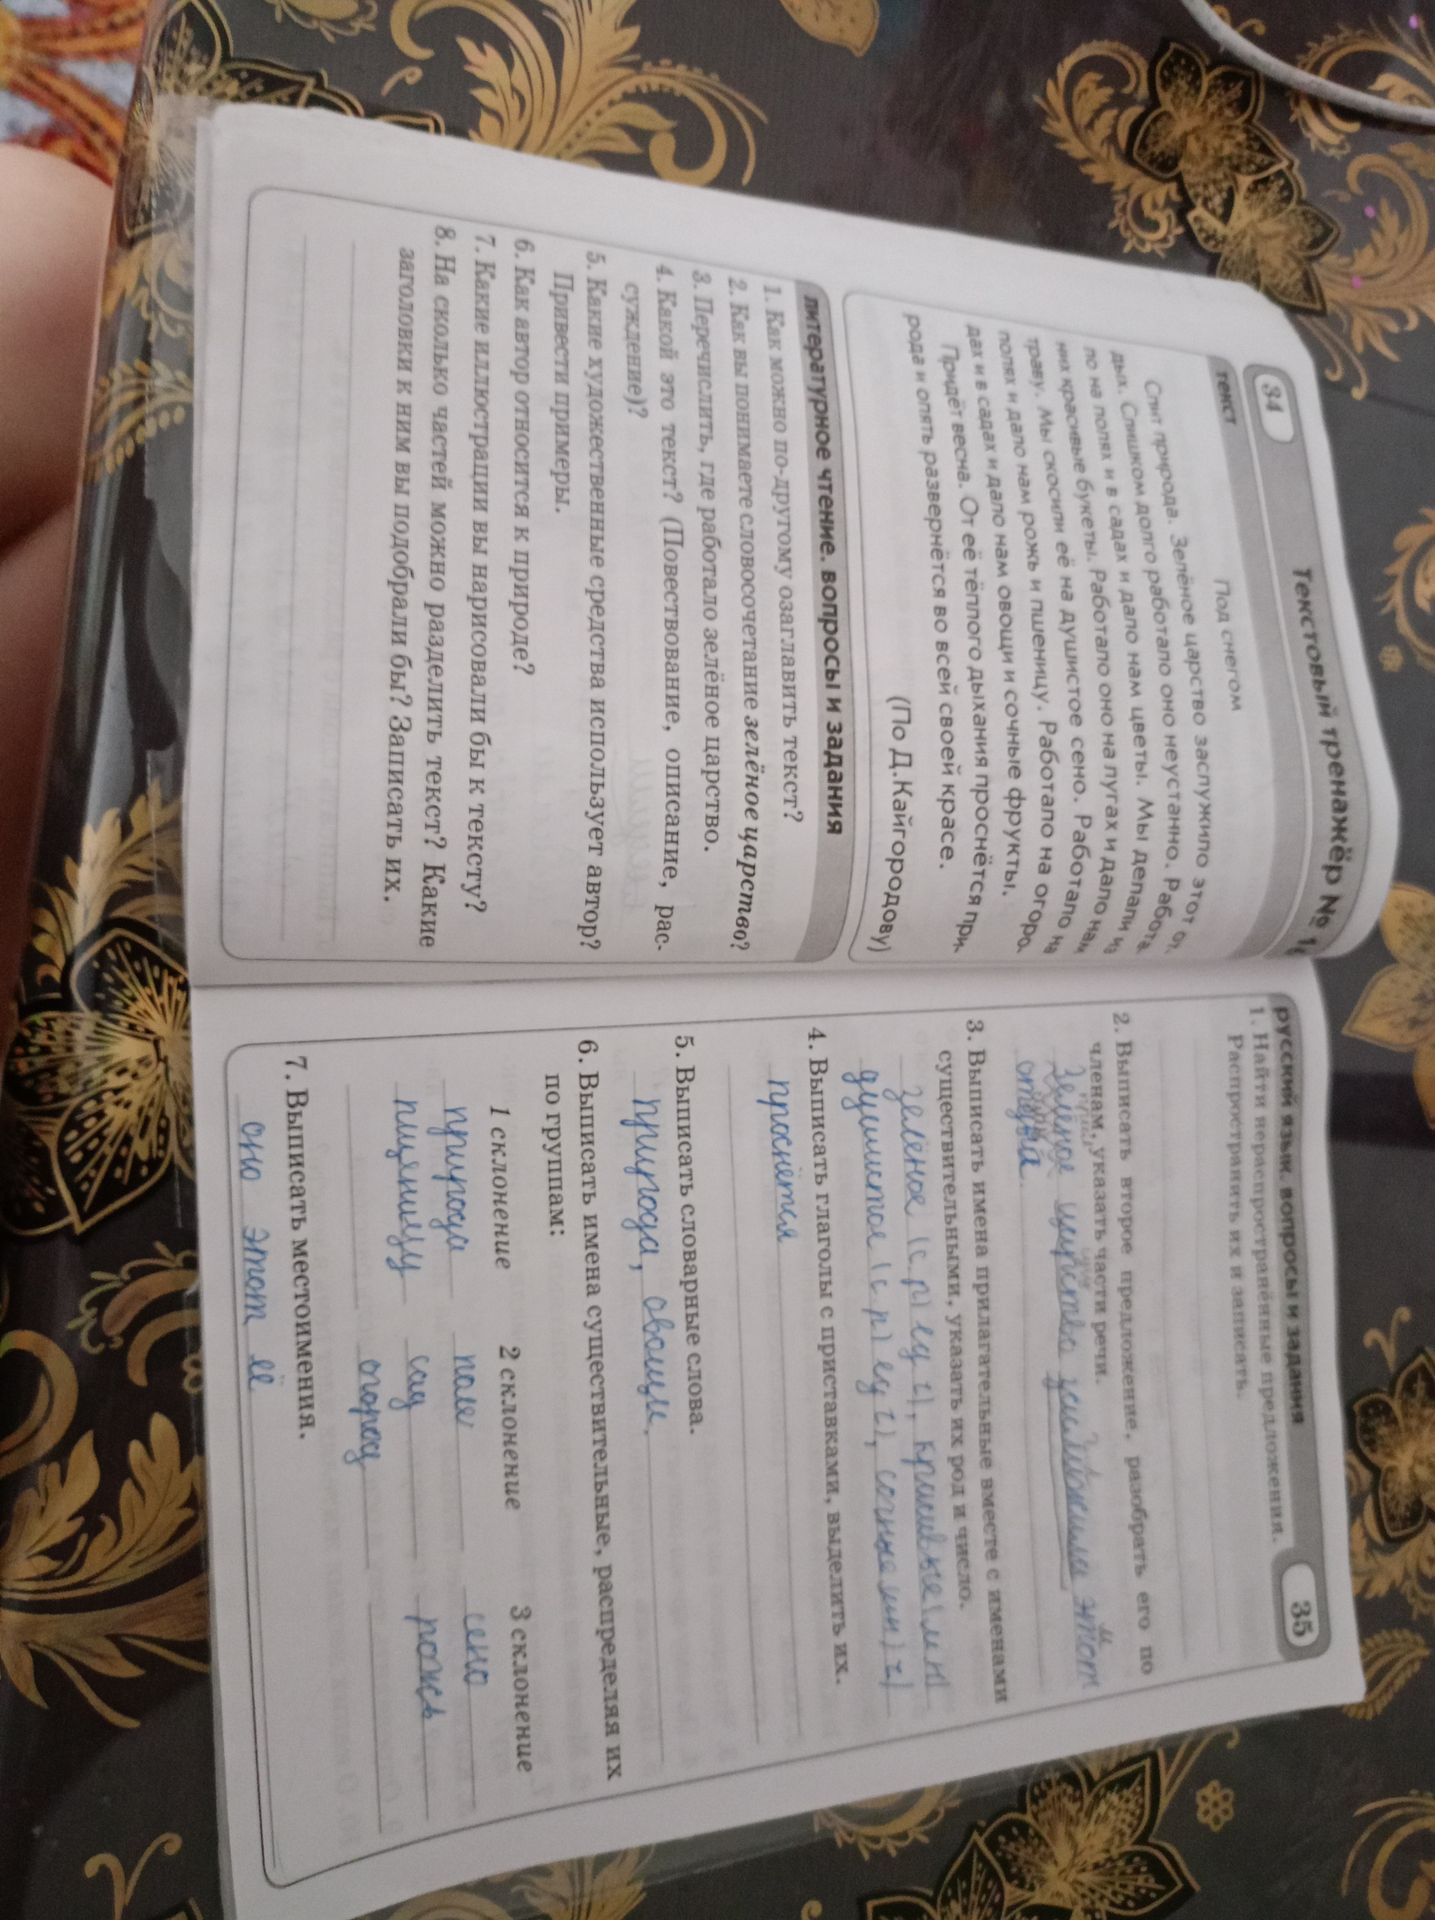 34
Текстовый тренажёр №
текст
Под снегом
Спит природа. Зелёное царство заслужило этот
дых. Слишком долго работало оно неустанно. Работа
ло на полях и в садах и дало нам цветы. Мы делали из
них красивые букеты. Работало оно на лугах и дало нам
траву. Мы скосили её на душистое сено. Работало на
полях и дало нам рожь и пшеницу. Работало на огоро
дах и в садах и дало нам овощи и сочные фрукты.
Придёт весна. От её тёплого дыхания проснётся при-
рода и опять развернётся во всей своей красе.
(По Д.Кайгородову)
литературное чтение. вопросы и задания
1. Как можно по-другому озаглавить текст?
2. Как вы понимаете словосочетание зелёное царство?
3. Перечислить, где работало зелёное царство.
4. Какой это текст? (Повествование, описание, рас-
суждение)?
5. Какие художественные средства использует автор?
Привести примеры.
6. Как автор относится к природе?
7. Какие иллюстрации вы нарисовали бы к тексту?
8. На сколько частей можно разделить текст? Какие
заголовки к ним вы подобрали бы? Записать их.
русский язык. вопросы и задания
35
1. Найти нераспространённые предложения.
Распространить их и записать.
2. Выписать второе предложение, разобрать его по
членам, указать части речи.
Зелёное царство заслужило этот
отдых
3. Выписать имена прилагательные вместе с именами
существительными, указать их род и число.
зелёное (с р) ед ч), красивые
душистое (с р) ед ч), сочные
4. Выписать глаголы с приставками, выделить их.
проснётся
5. Выписать словарные слова.
природа, овощи.
6. Выписать имена существительные, распределяя их
по группам:
1 склонение 2 склонение 3 склонение
природа поле сено
пшеницу сад рожь
огород
7. Выписать местоимения.
оно этот её